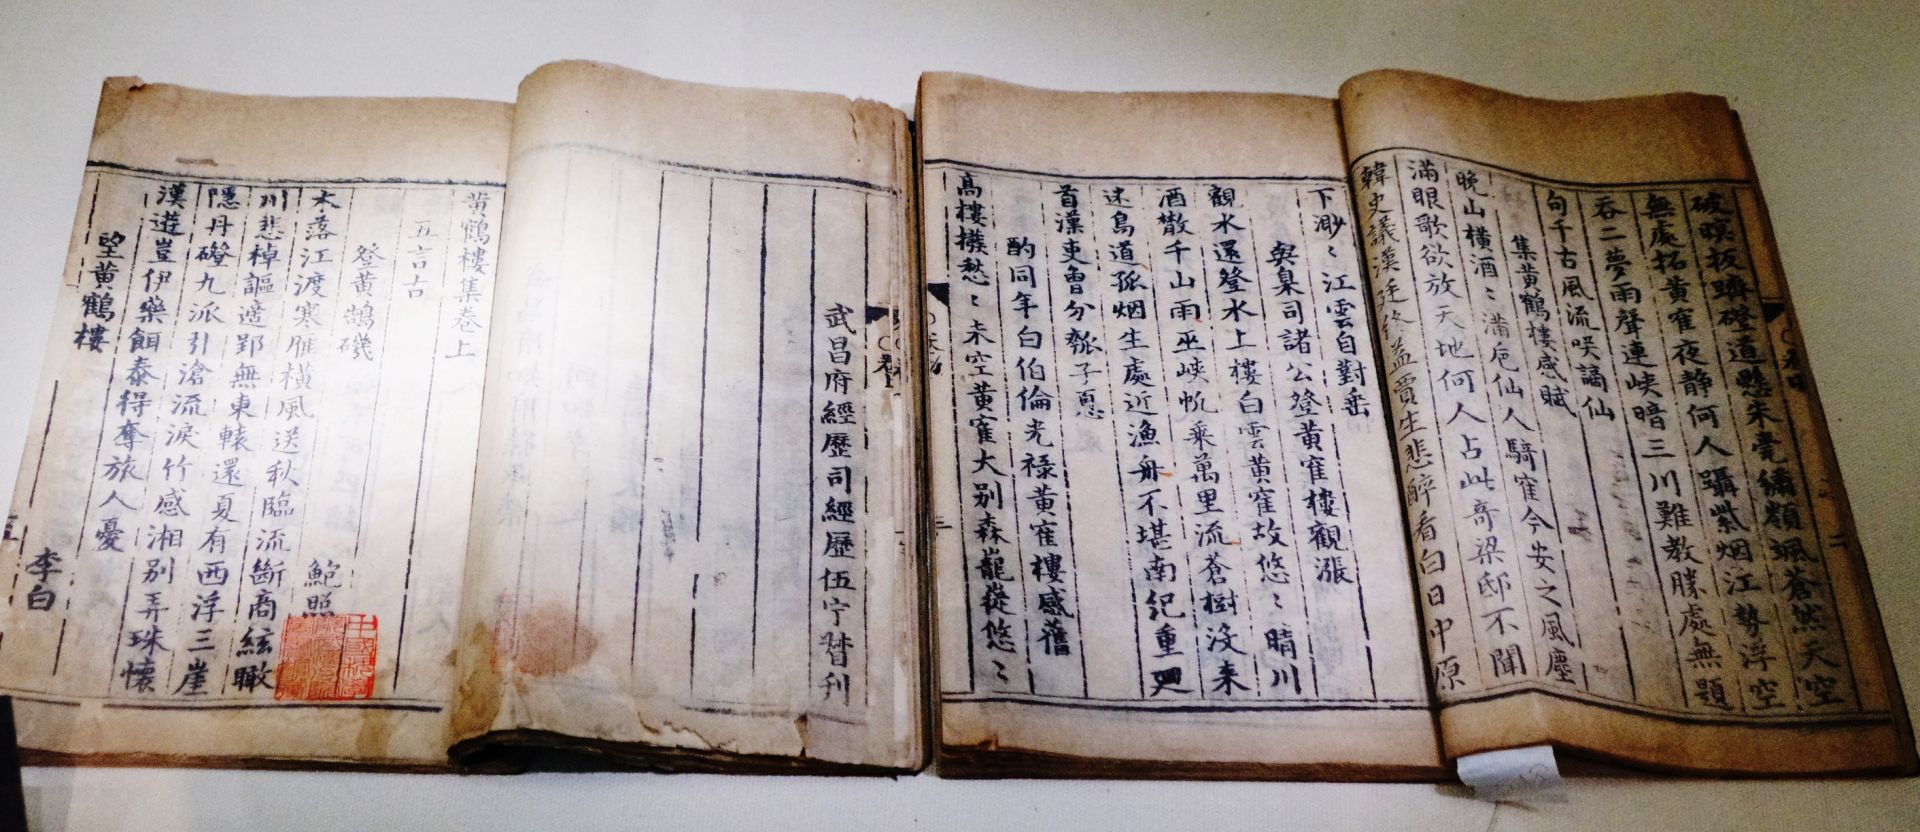 破暝扳躋磴道懸朱甍繡嶺颯蒼然天空
無處拓黃寉夜静何人躡紫烟江勢浮空
吞二夢雨聲連峡暗三川難教勝處無題
句千古風流咲謫仙
集黃鶴樓感賦
晩山橫酒〻滿巵仙人騎寉今安之風塵
滿眼歌欲放天地何人占此奇梁邸不聞
韓史議漢廷終盖賈生悲醉看白日中原
下渺〻江雲自對垂
與臬司諸公登黃寉樓觀漲
觀水還登水上樓白雲黃寉故悠〻晴川
酒散千山雨巫峡帆乘萬里流蒼樹没来
迷鳥道孤烟生處近漁舟不堪南紀重廻
首漢吏曾分瓠子憂
酌同年白伯倫光禄黃寉樓感舊
高樓攓愁〻未空黃寉大别森巃嵸悠〻
武昌府經歷司經歷伍宁督刋
黃鶴樓集卷上
五言古
登黃鵠磯
鮑照
木落江渡寒雁橫風送秋臨流斷商絃瞰
川悲棹謳適郢無東轅還夏有西浮三崖
隱丹磴九派引滄流淚竹感湘别弄珠懷
漢遊豈伊藥餌泰得奪旅人憂
望黃鶴樓
李白